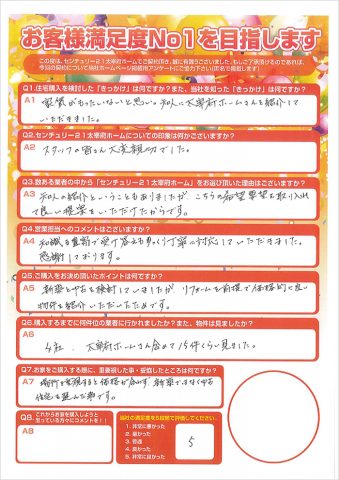 お客様満足度No1を目指します
この度は、センチュリー21太宰府ホームでご契約頂き、誠に有難うございました。もしご了承頂けるのであれば、
今回の契約について当社ホームページ掲載用アンケートにご協力下さい(匿名で掲載します)
Q1.住宅購入を検討した「きっかけ」は何ですか?また、当社を知った「きっかけ」は?
A1 家賃がもったいないと思い。知人に太宰府ホームさんを紹介して
いただきました。
Q2.センチュリー21太宰府ホームについての印象は何かございますか?
A2 スタッフの皆さん大変親切でした。
Q3.数ある業者の中から「センチュリー21太宰府ホーム」をお選び頂いた理由はございますか?
A3 知人の紹介ということもありましたが、こちらの希望要望を取り入れ
て良い提案をいただけたからです。
Q4.営業担当へのコメントはございますか?
A4 知識も豊富で受け答えも早くり丁寧に対応していただきました。
感謝しております。
Q5.ご購入をお決め頂いたポイントは何ですか?
A5 新築と中古を検討していましたが、リフォームを前提で価格的に良い
物件を紹介いただいたためです。
Q6.購入するまでに何件位の業者に行かれましたか?また、物件は見ましたか?
A6 4社、太宰府ホームさん含めて15件くらい見ました。
Q7.お家をご購入する際に、重要視した事・妥協したところは何ですか?
A7 場所を重視すると価格が合わず、新築ではなく中古
住宅を選んだ事です。
Q8.これからお家を購入しようと
思っている方々にコメントを!!
A8
当社の満足度を5段階で評価してください。
1.非常に悪かった
2.悪かった
3.普通
4.良かった
5.非常に良かった
5